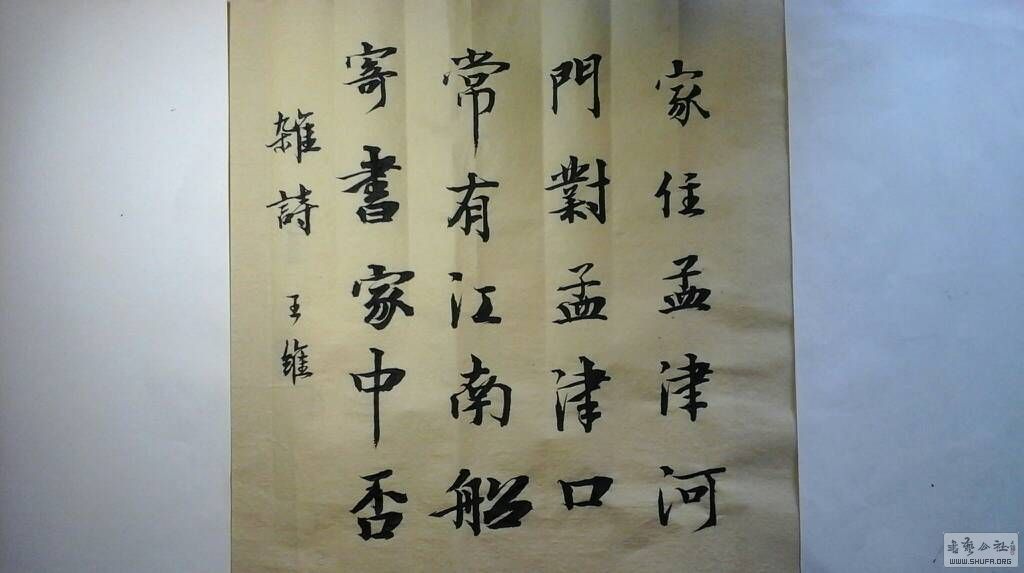 家住孟津河
門對孟津口
常有江南船
寄書家中否
雜詩 王維
書藝公社
WWW.SHUFA.ORG